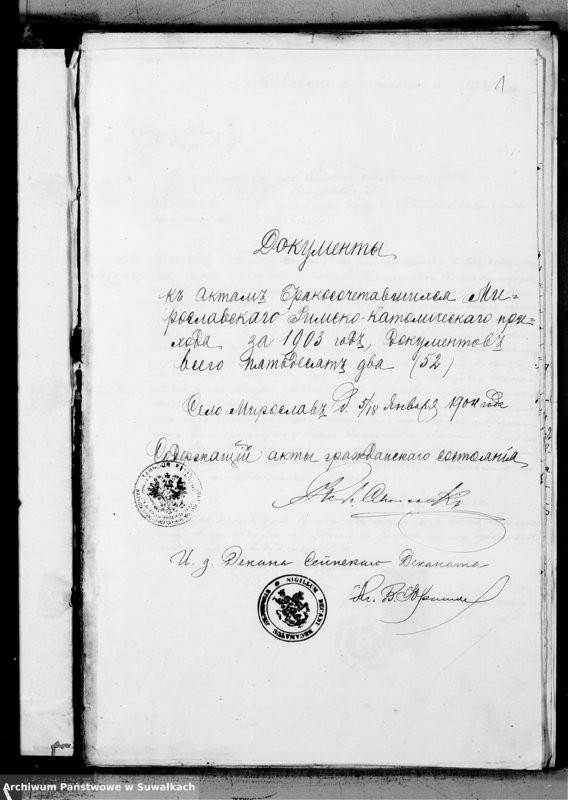 1
Документы
къ актамъ бракосочетавшихся Ми-
рославскаго Римско-Католическаго при-
хода за 1903 годъ, Документовъ
всего пятьдесятъ два (52)
Село Мирославъ д. 5/18 Января 1904 года
Содержащій акты гражданскаго состоянія
И. д. Декана Сейнскаго Деканата
SIGILLUM DECANI DECANATUS
Archiwum Państwowe w Suwałkach